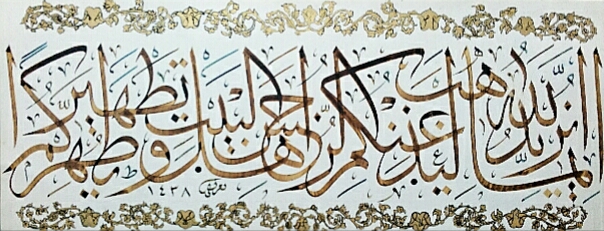 إنما يريد الله ليذهب عنكم الرجس أهل البيت ويطهركم تطهيرا
١٤٣٨